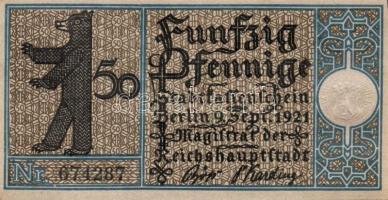 Funfzig
50 Pfennige
Stadtkassenschein
Berlin 9. Sept. 1921
Magistrat der
Reichshauptstadt
Nr. 674287